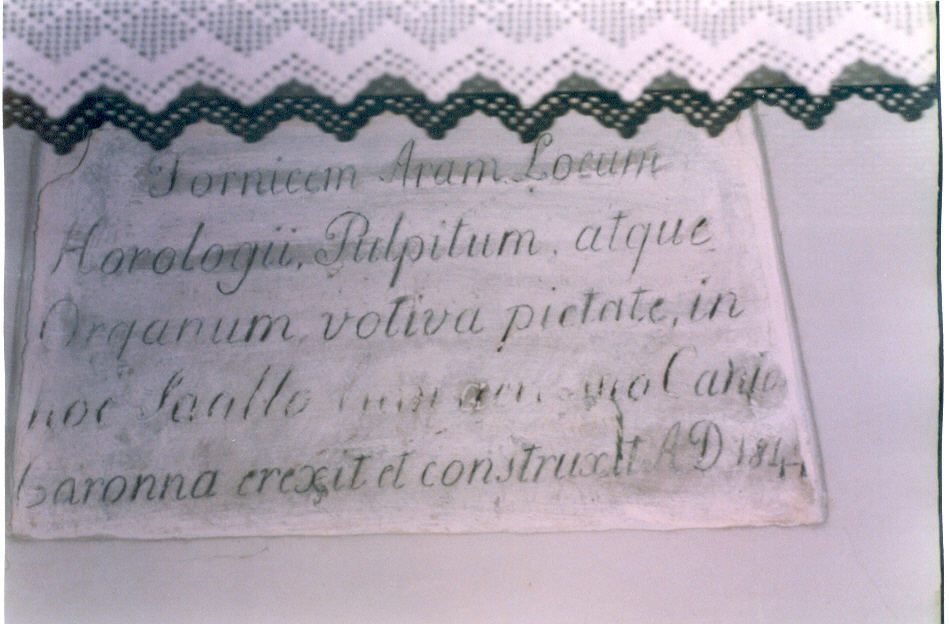 Fornicem Aram Locum
Horologii, Pulpitum, atque
Organum, votiva pietate, in
hoc
Garonna erexit et construxit A D 184